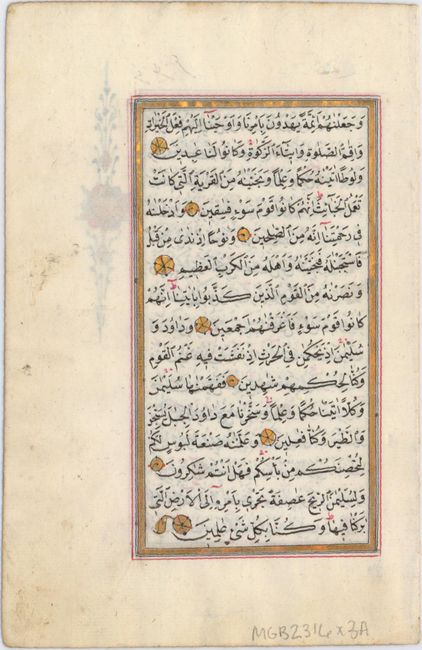 وَجَعَلْنٰهُمْ اَئِمَّةً يَهْدُونَ بِاَمْرِنَا وَاَوْحَيْنَا اِلَيْهِمْ فِعْلَ الْخَيْرَاتِ
وَاِقَامَ الصَّلٰوةِ وَاِيتَاءَ الزَّكٰوةِ وَكَانُوا لَنَا عٰبِدِينَ
وَلُوطًا اٰتَيْنٰهُ حُكْمًا وَعِلْمًا وَنَجَّيْنٰهُ مِنَ الْقَرْيَةِ الَّتِى كَانَتْ
تَعْمَلُ الْخَبَائِثَ اِنَّهُمْ كَانُوا قَوْمَ سَوْءٍ فٰسِقِينَ وَاَدْخَلْنٰهُ
فِى رَحْمَتِنَا اِنَّهُ مِنَ الصّٰلِحِينَ وَنُوحًا اِذْ نَادٰى مِنْ قَبْلُ
فَاسْتَجَبْنَا لَهُ فَنَجَّيْنٰهُ وَاَهْلَهُ مِنَ الْكَرْبِ الْعَظِيمِ
وَنَصَرْنٰهُ مِنَ الْقَوْمِ الَّذِينَ كَذَّبُوا بِاٰيٰتِنَا اِنَّهُمْ
كَانُوا قَوْمَ سَوْءٍ فَاَغْرَقْنٰهُمْ اَجْمَعِينَ وَدَاوُدَ وَ
سُلَيْمٰنَ اِذْ يَحْكُمَانِ فِى الْحَرْثِ اِذْ نَفَشَتْ فِيهِ غَنَمُ الْقَوْمِ
وَكُنَّا لِحُكْمِهِمْ شٰهِدِينَ فَفَهَّمْنٰهَا سُلَيْمٰنَ
وَكُلًّا اٰتَيْنَا حُكْمًا وَعِلْمًا وَسَخَّرْنَا مَعَ دَاوُدَ الْجِبَالَ يُسَبِّحْنَ
وَالطَّيْرَ وَكُنَّا فٰعِلِينَ وَعَلَّمْنٰهُ صَنْعَةَ لَبُوسٍ لَكُمْ
لِتُحْصِنَكُمْ مِنْ بَأْسِكُمْ فَهَلْ اَنْتُمْ شٰكِرُونَ
وَلِسُلَيْمٰنَ الرِّيحَ عَاصِفَةً تَجْرِى بِاَمْرِهِ اِلَى الْاَرْضِ الَّتِى
بٰرَكْنَا فِيهَا وَكُنَّا بِكُلِّ شَىْءٍ عٰلِمِينَ
MGB2316 x 3A